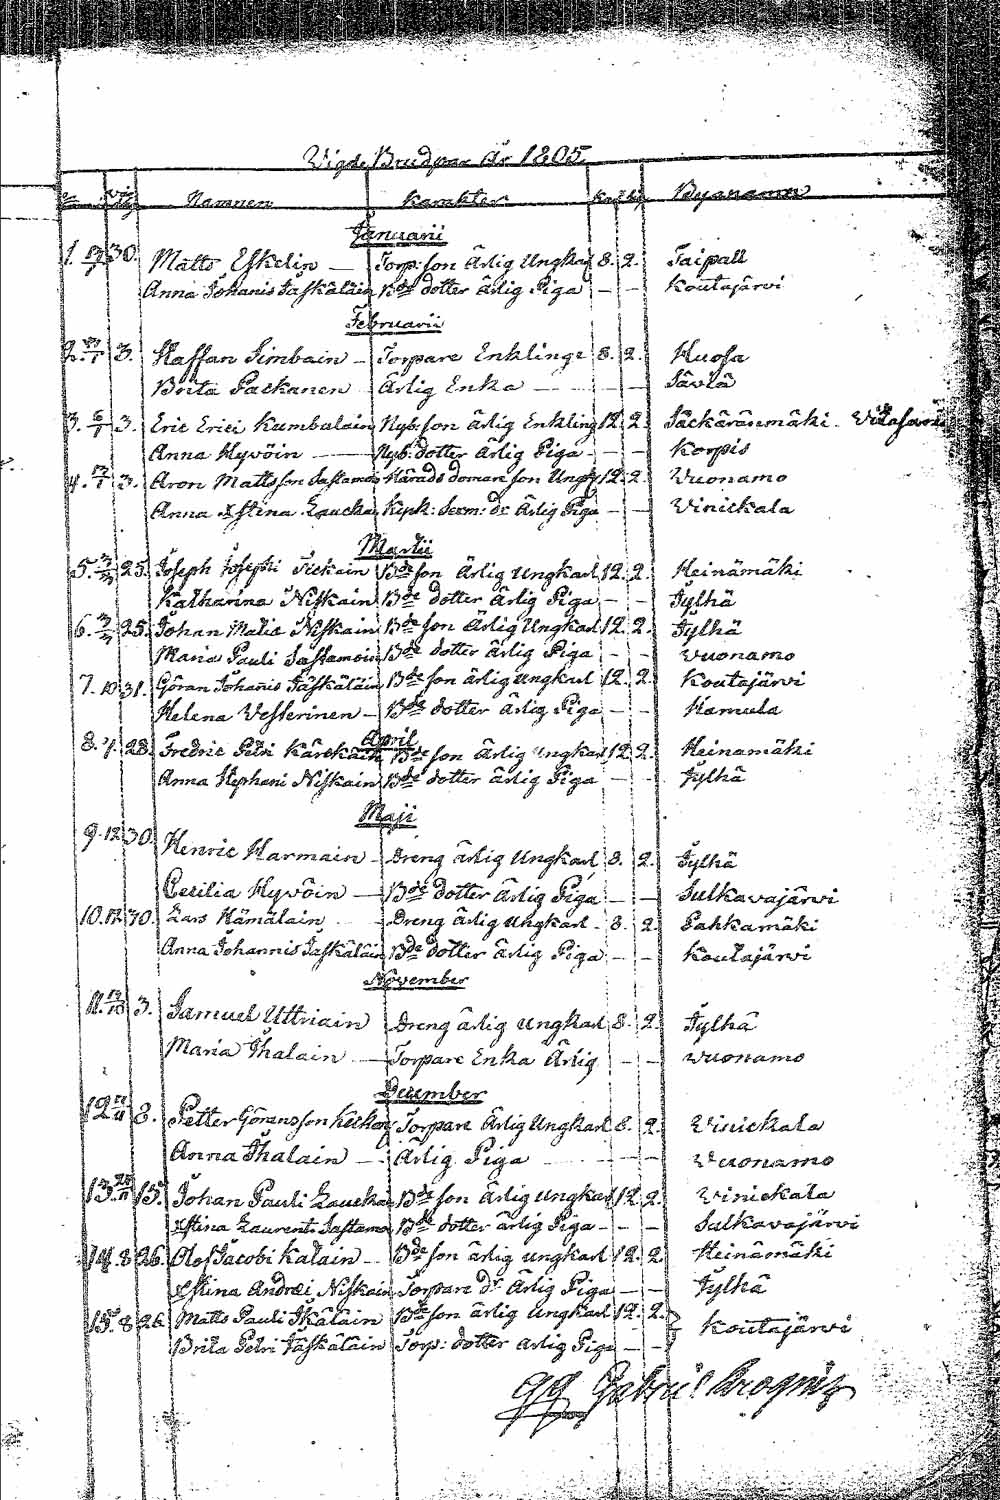 Vigde Brudpar År 1805.
Namnen Karakter Byanamn
Januarii
1. 30. Matts Eskelin — Torp: son Ärlig Ungkarl 8. 2. Taipall
Anna Johanis Jäskäläin Bde dotter Ärlig Piga — — Koutajärvi
Februarii
2. 3. Staffan Simbain — Torpare Enklinge 8. 2. Kuosa
Brita Packanen Ärlig Enka — — — Säviä
3. 6/1 3. Eric Erici Kumbulain Nyb: son ärlig Enkling 12. 2. Säckäränmäki.
Anna Hyvöin — Nyb: dotter ärlig Piga — — Korpis
4. 3. Aron Mattsson Sastamoin Härads domare son Ungk 12. 2. Wuonamo
Anna Xstina Laucka Kyrk: Sexm: dr Ärlig Piga — — Winickala
Martii
5. 25. Joseph Josephi Tickain Bde son Ärlig Ungkarl 12. 2. Heinämäki
Katharina Niskain Bde dotter Ärlig Piga — — Jylhä
6. 25. Johan Matts Niskain Bde son Ärlig Ungkarl 12. 2. Jylhä
Maria Pauli Sastamoin Bde dotter ärlig Piga — — Wuonamo
7. 10 31. Göran Johanis Jäskäläin Bde son ärlig Ungkarl 12. 2. Koutajärvi
Helena Vesterinen — Bde dotter Ärlig Piga — — Hamula
April
8. 7. 28. Fredric Petri Kärckäin Bde son Ärlig Ungkarl 12 2. Heinamäki
Anna Stephani Niskain Bde dotter ärlig Piga — — Jylhä
Maji
9. 12 30. Henric Harmain — Dreng ärlig Ungkarl 8. 2. Jylhä
Cecilia Hyvöin — Bde dotter Ärlig Piga — — Sulkavajärvi
10. 12 30. Lars Hämälain Dreng Ärlig Ungkarl - 8. 2. Pahkamäki
Anna Johannis Jäskäläin Bde dotter Ärlig Piga — — Koutajärvi
November
11. 3. Samuel Uttriain Dreng ärlig Ungkarl 8. 2. Jylhä
Maria Ihalain — Torpare Enka Ärlig — — Wuonamo
December
12 8. Petter Göransson Torpare Ärlig Ungkarl 8. 2. Winickala
Anna Ihalain — Ärlig Piga — — Wuonamo
13. 15. Johan Pauli Laucka Bde son ärlig Ungkarl 12. 2. Winickala
Xstina Laurents Sastamo Bde dotter ärlig Piga — — — Sulkavajärvi
14. 8 26. Olof Jacobi Kalain — Bde son ärlig Ungkarl 12. 2. Heinämäki
Xstina Andrei Niskain Torpare dr Ärlig Piga — — Jylhä
15. 8 26. Matts Pauli Ikäläin Bde son ärlig Ungkarl 12. 2. Koutajärvi
Brita Petri Jäskäläin Torp: dotter ärlig Piga — —
Gabriel Krogius